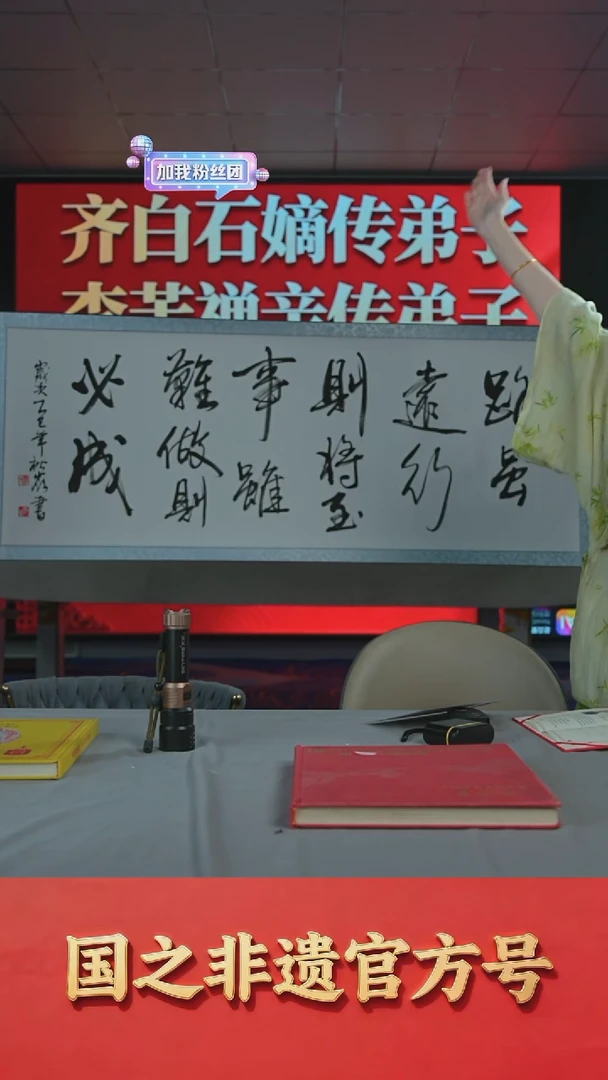 加我粉丝团
齐白石嫡传弟子
李苦禅亲传弟子
路虽
遠行
則将至
事雖
難做則
必成
歲次乙巳年松書
国之非遗官方号